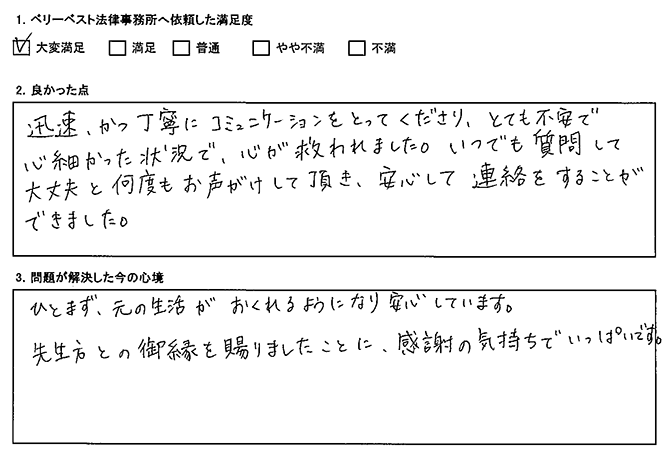 1. ベリーベスト法律事務所へ依頼した満足度
☑ 大変満足 □ 満足 □ 普通 □ やや不満 □ 不満
2. 良かった点
迅速、かつ丁寧にコミュニケーションをとってくださり、とても不安で
心細かった状況で、心が救われました。いつでも質問して
大丈夫と何度もお声がけして頂き、安心して連絡をすることが
できました。
3. 問題が解決した今の心境
ひとまず、元の生活がおくれるようになり安心しています。
先生方との御縁を賜りましたことに、感謝の気持ちでいっぱいです。